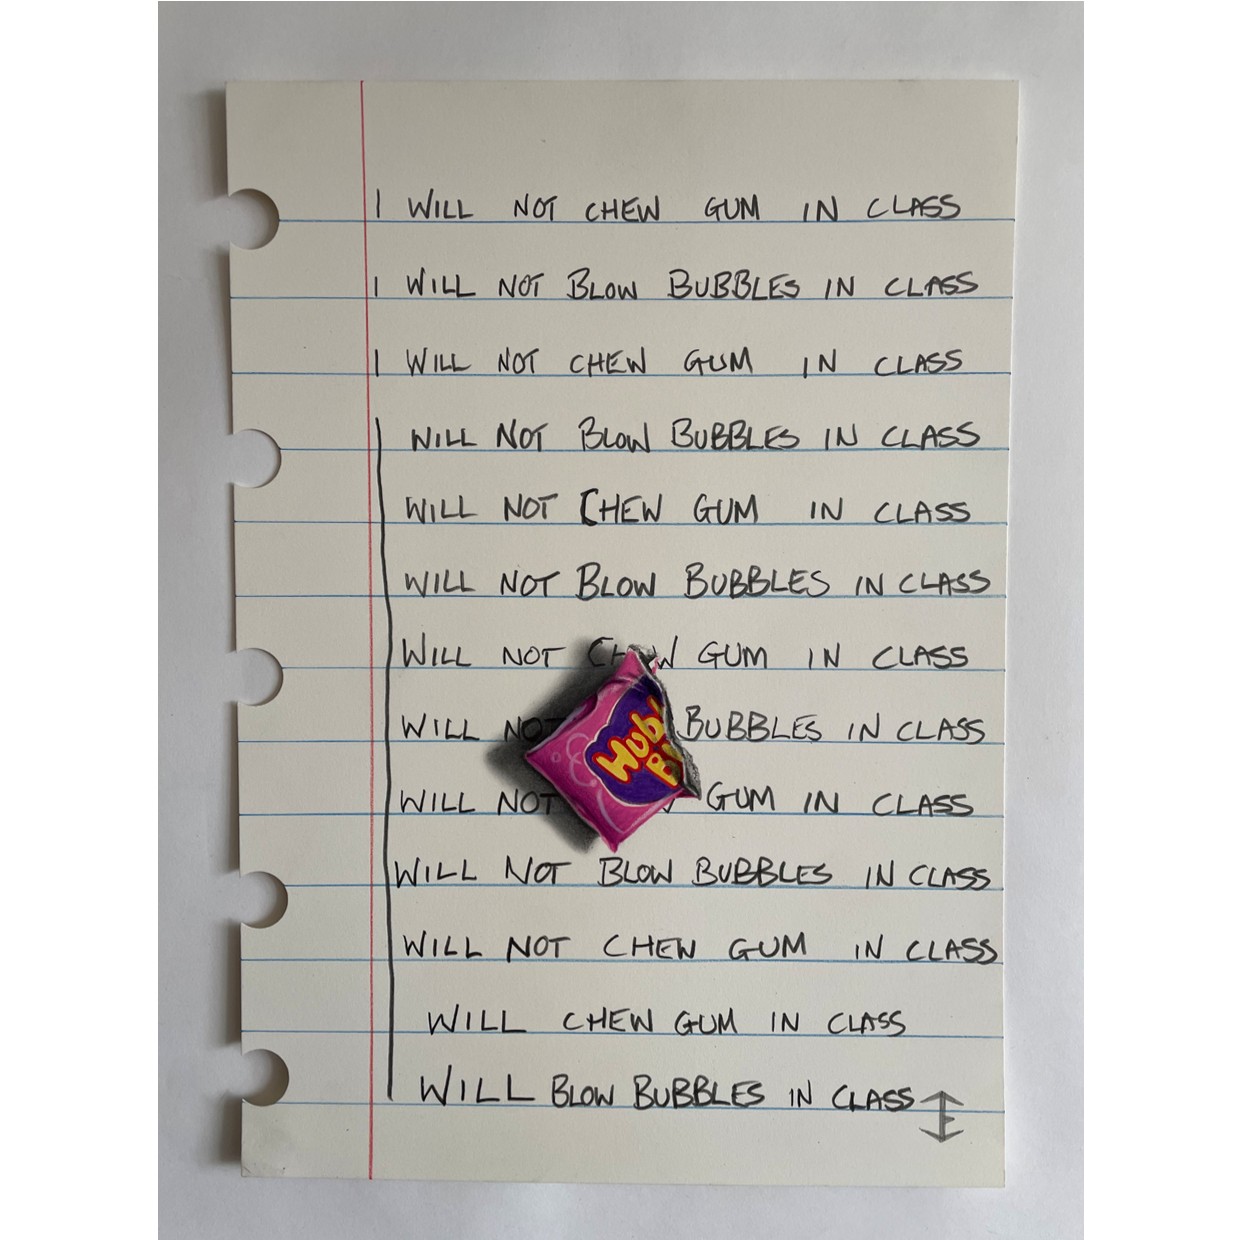 I WILL NOT CHEW GUM IN CLASS
I WILL NOT BLOW BUBBLES IN CLASS
I WILL NOT CHEW GUM IN CLASS
I WILL NOT BLOW BUBBLES IN CLASS
WILL NOT CHEW GUM IN CLASS
WILL NOT BLOW BUBBLES IN CLASS
WILL NOT CHEW GUM IN CLASS
WILL NOT BUBBLES IN CLASS
Hubb
WILL NOT GUM IN CLASS
WILL NOT BLOW BUBBLES IN CLASS
WILL NOT CHEW GUM IN CLASS
WILL CHEW GUM IN CLASS
WILL BLOW BUBBLES IN CLASS